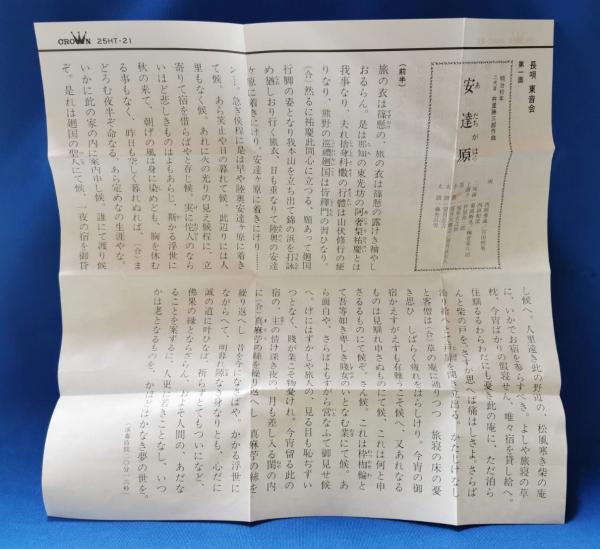 CROWN 25HT-21
長唄 東音会
第一面
明治初年
二代目 杵屋勝三郎作曲
安達原
あだちがはら
唄
(前半)
旅の衣は篠懸の、旅の衣は篠懸の露けき袖やし
おるらん。是は那知の東光坊の阿奢梨祐慶とは
我事なり、夫れ捨身抖擻の行體は山伏修行の便
りなり、熊野の巡禮廻国は皆釋門の習ひなり。
(合)然るに祐慶此間心に立つる、願あって廻国
行脚の姿となり我本山を立ち出て錦の浜を打詠
め猶しおり行く旅衣、日も重なりて陸奥の安達
ヶ原に着きにけり、安達ヶ原に着きにけり……
ン……、急ぎ候程に是は早や陸奥安達ヶ原に着き
て候、あら笑止や日の暮れて候。此辺りには人
里もなく候、あれに火の光りの見え候程に、立
寄りて宿を借らばやと存じ候、実に佗人のなら
いほど悲しきものはよもあらじ、斯かる浮世に
秋の来て、朝げの風は身に染めども、胸を休む
る事もなく、昨日も空しく暮れぬれば、(合)ま
どろむ夜半ぞ命なる、あら定めなの生涯やな。
いかに此の家の内に案内申し候、誰にて渡り候
ぞ。是れは廻国の聖人にて候、一夜の宿を御貸
し候へ。人里遠き此の野辺の、松風寒き柴の庵
に、いかでお宿を参らすべき。よしや旅寝の草
枕、今宵ばかりの仮寝せん、唯々宿を貸し給へ。
住馴るるわらわだにも憂き此の庵に、ただ泊ら
んと柴の戸を、さすが思へば痛はしさよ、さらば
泊り給へとて、樞を開き立出る。かたじけなし
と客僧は(合)草の庵に通りつつ 旅寝の床の憂
き思ひ しばらく疲れをはらしけり、今宵の御
宿かえすがえすも有難うこそ候へ、又あれなる
ものは見馴れ申さぬものにて候、これは何と申
さるるものにて候ぞ。さん候。これは枠枷輪と
て吾等如き卑しき賤女のいとなむ業にて候。あ
ら面白や、さらばよもすがら営なふて御見せ候
へ。げにはずかしや旅人の、見る目も恥ぢずい
つとなく、賤が業こそ物憂けれ。今宵留る此の
宿の、主の情け深き夜の、月も差し入る閨の内
に(合)真麻苧の絲を繰り返へし 真麻苧の絲を
繰り返へし 昔を今になさばや。かかる浮世に
ながらへて、明暮れ隙なき身なりとも、心だに
誠の道に叶ひなば、祈らずとてもついになど、
佛果の縁とならざらん、およそ人間の、あだな
ることを案ずるに、人更に若きことなし、いつ
かは老となるものを、かほどはかなき夢の世を。
(演奏時間二〇分二六秒)